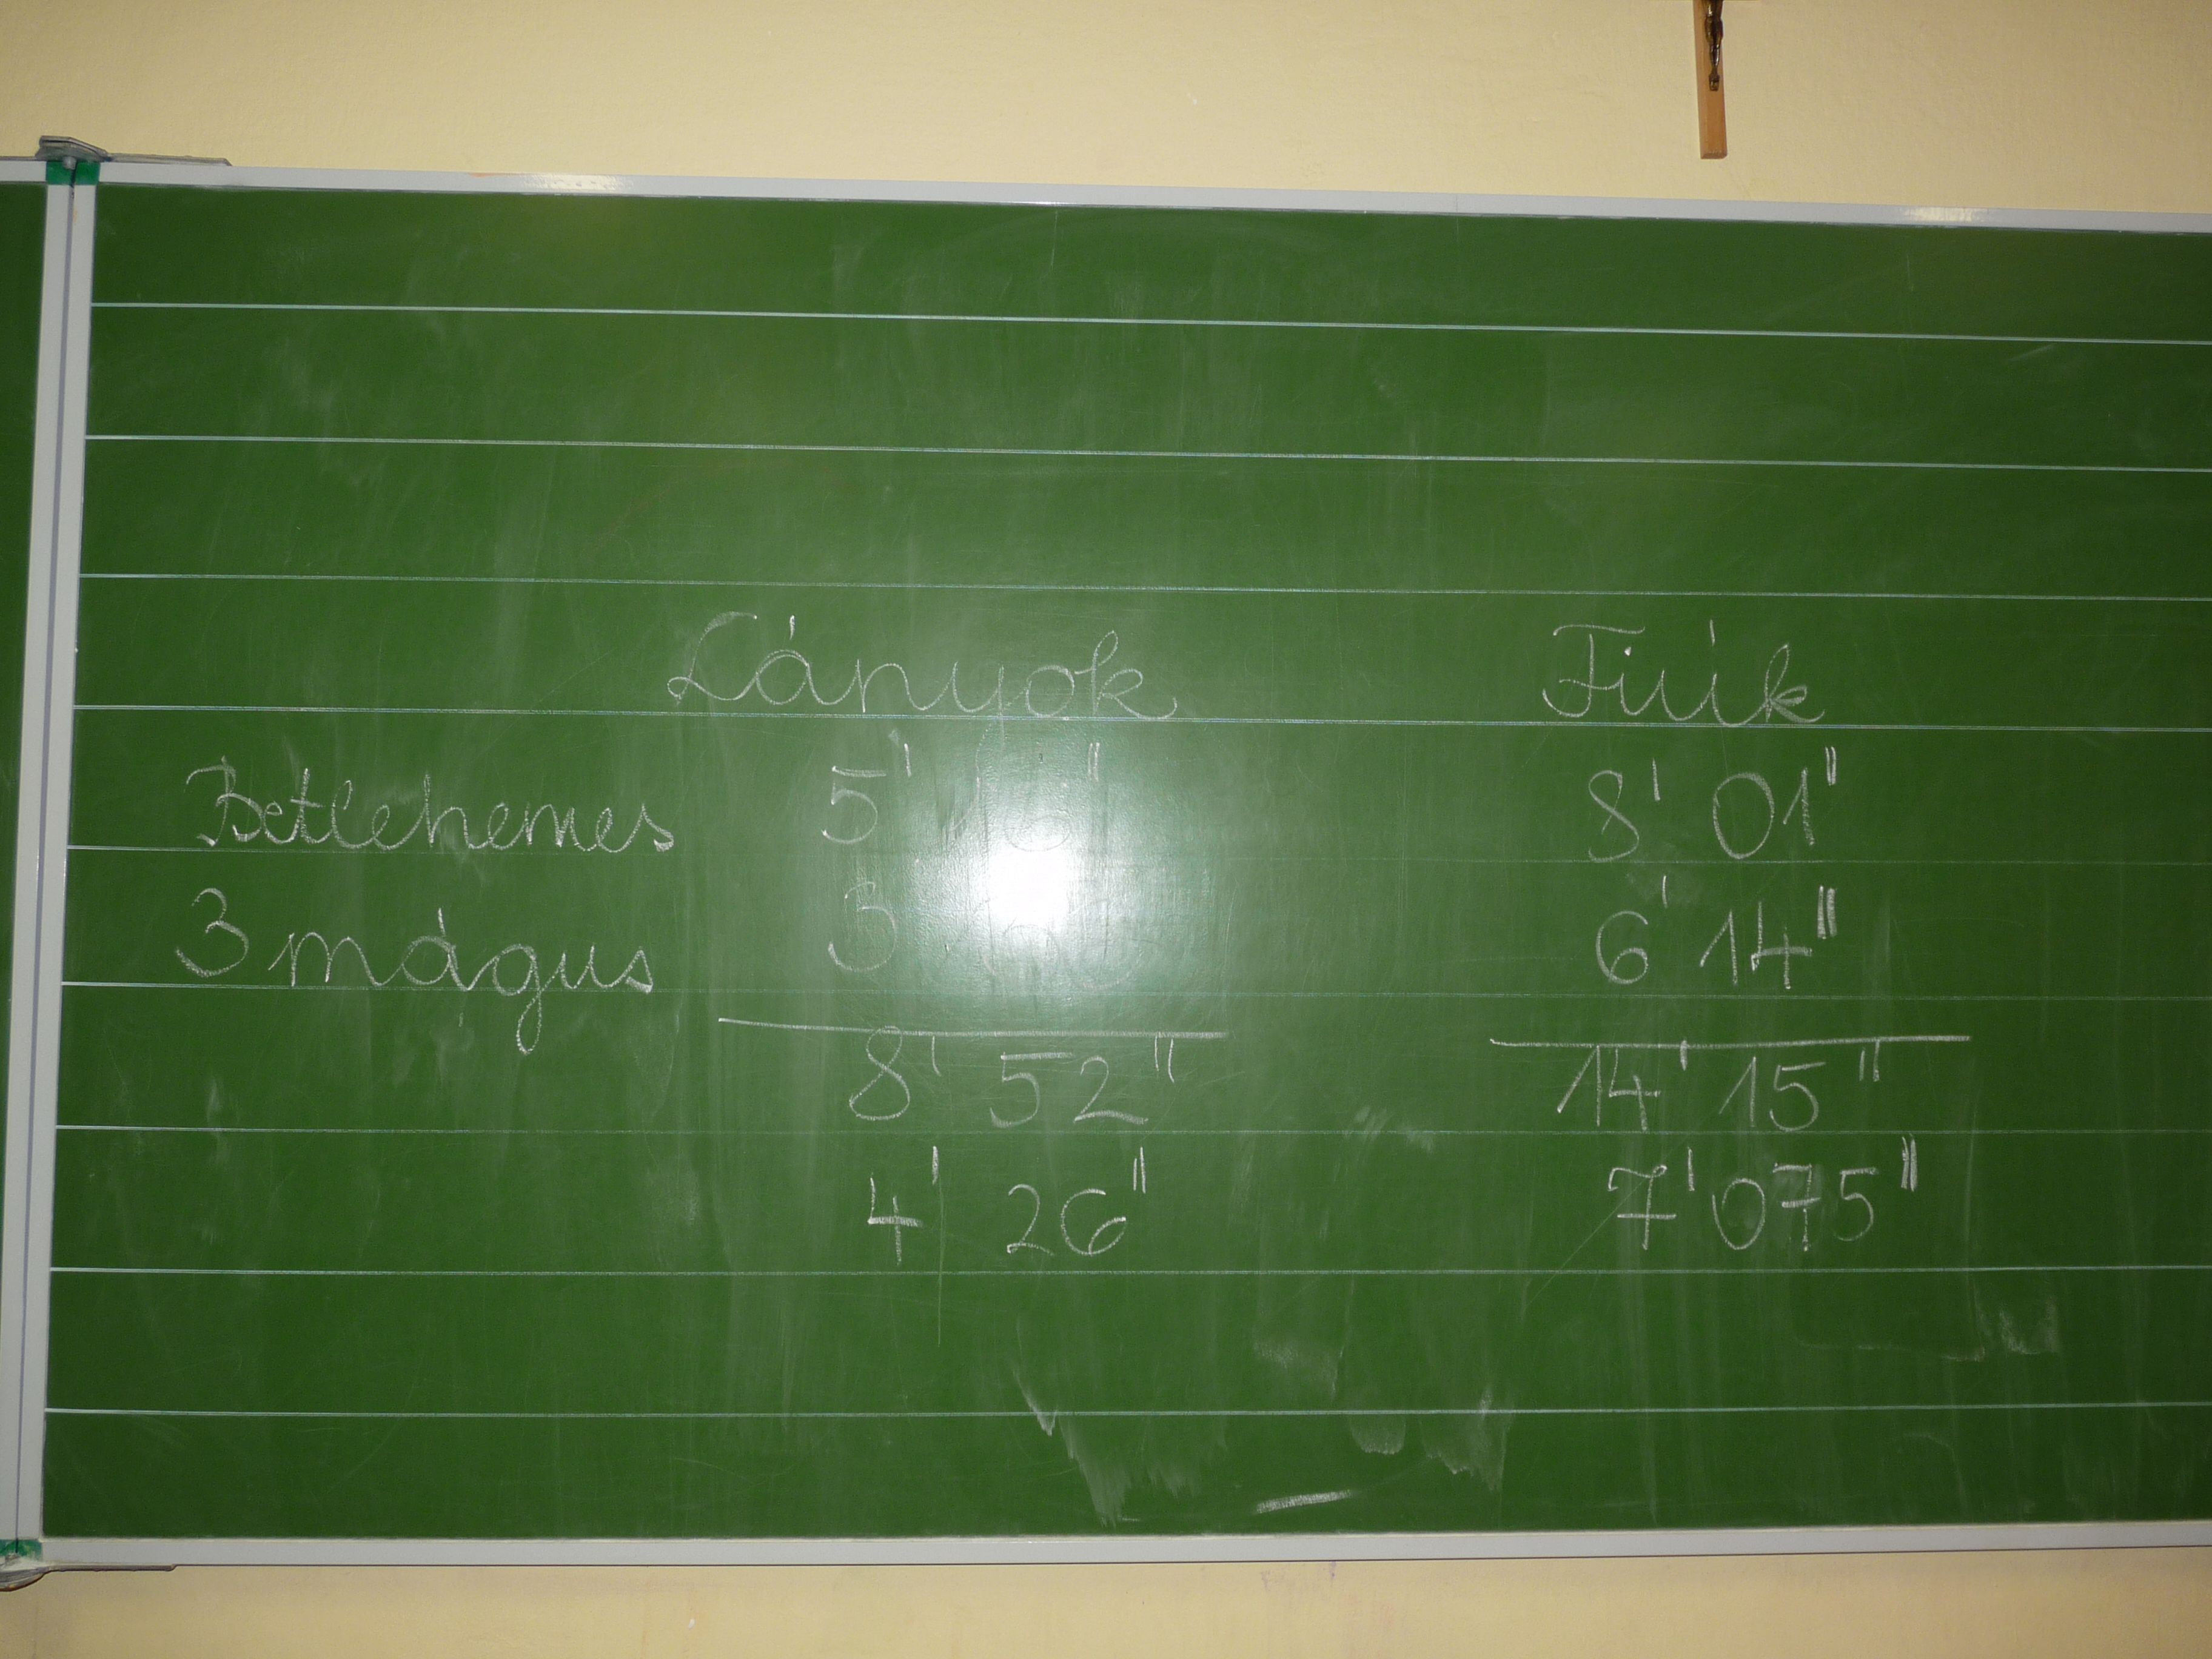 Lányok Fiúk
Betlehemes 5' 8' 01"
3 mágus 3 6' 14"
8' 52" 14' 15"
4' 26" 7' 075"